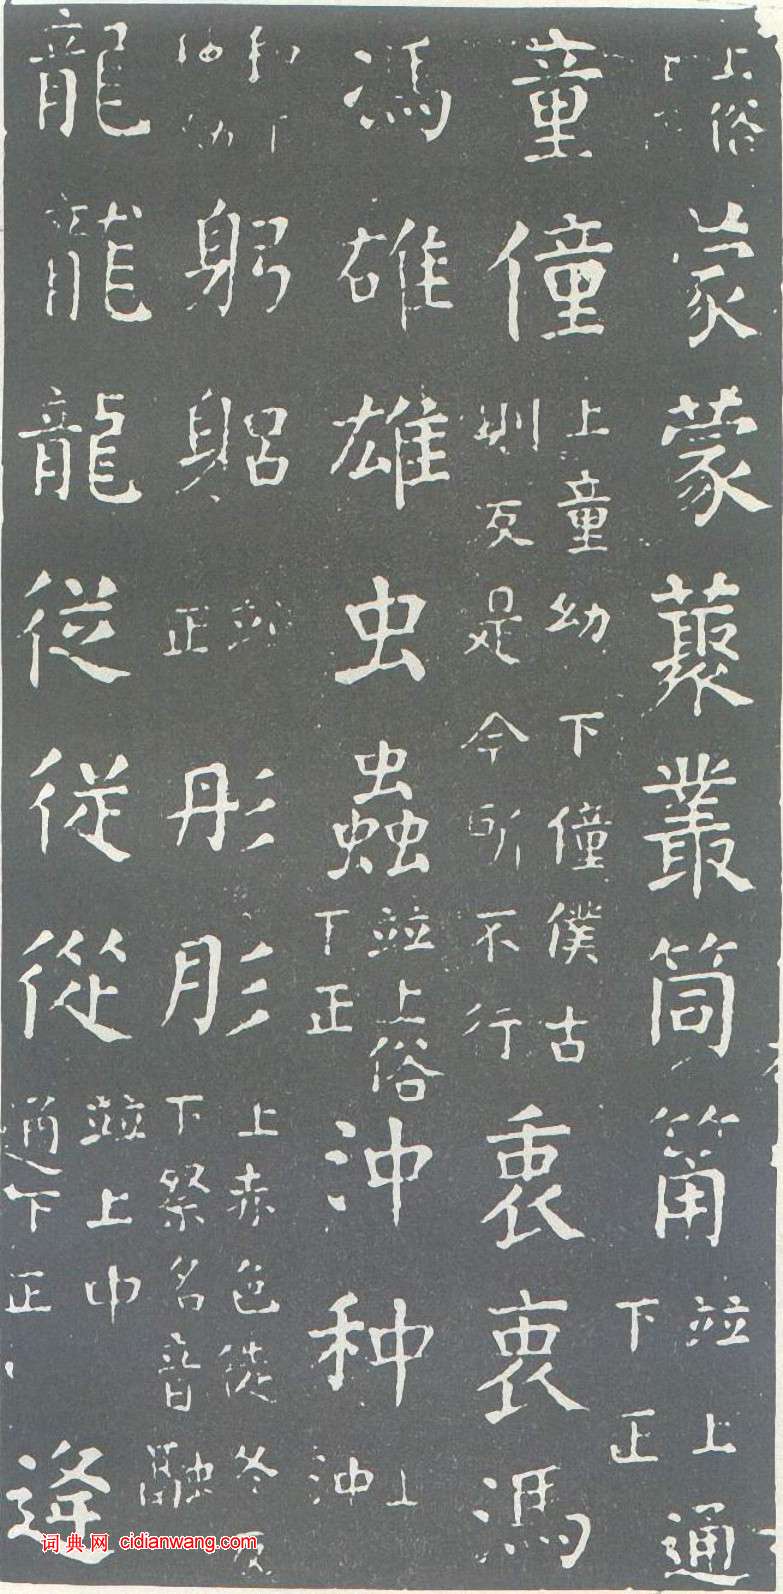 上俗蒙蒙藂叢筒筩並上通下正
童僮上童幼下僮僕古則反是今所不行衷衷馮
馮雄雄虫蟲並上俗下正沖种上沖
和下幼躬躳並正彤肜上赤色徒冬反下祭名音融
龍龍龍従従從並上中通下正逢
词典网 cidianwang.com